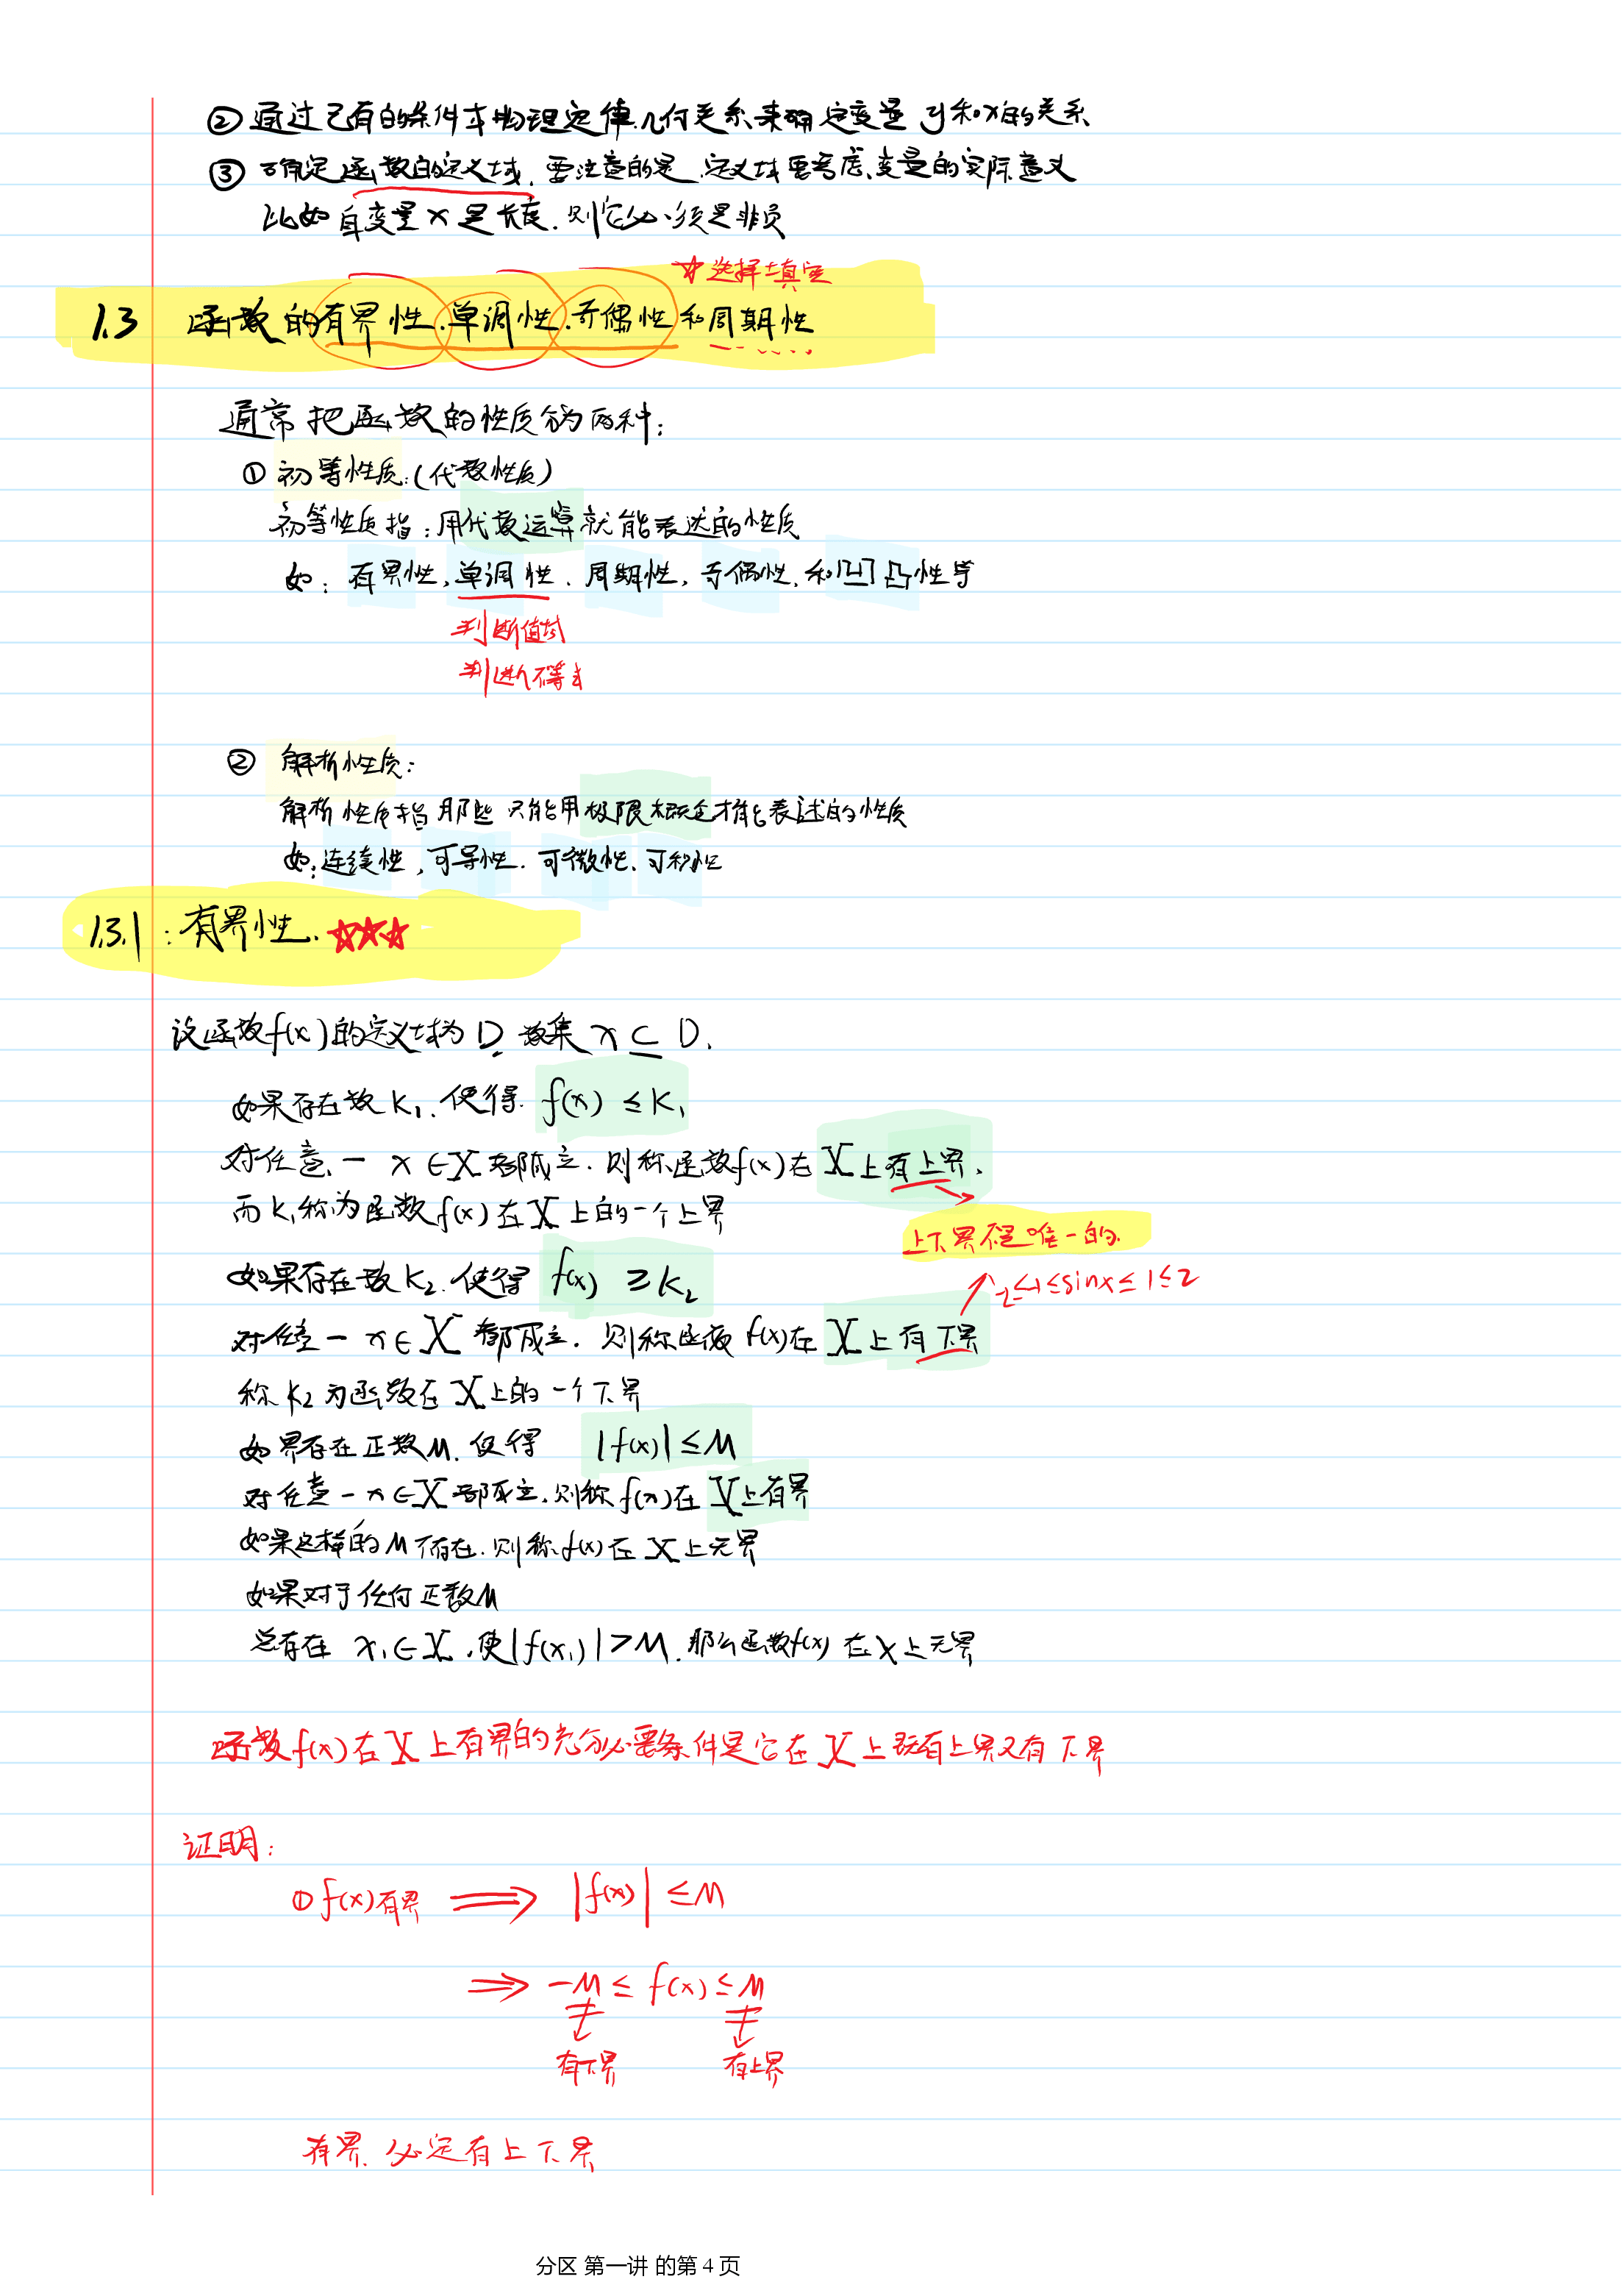 ② 通过已有的条件或物理定律、几何关系、来确定变量 y和x的关系
③ 确定函数的定义域,要注意的是,定义域要考虑变量的实际意义
比如自变量x是长度,则它必须是非负
☆选择填空
1.3 函数的有界性、单调性、奇偶性和周期性
通常把函数的性质分为两种:
① 初等性质:(代数性质)
初等性质指:用代数运算就能表达的性质
如: 有界性,单调性、周期性,奇偶性,和凹凸性等
判断值域
判断不等式
② 解析性质:
解析性质指那些只能用极限概念才能表述的性质
如:连续性,可导性、可微性、可积性
1.3.1:有界性、☆☆☆
设函数f(x)的定义域为D 数集 x ⊆ D.
如果存在数K₁.使得. f(x) ≤ K₁
对任意一 x∈X 都成立.则称函数f(x)在X上有上界,
而K₁称为函数f(x)在X上的一个上界
上下界不是唯一的.
如果存在数K₂.使得 f(x) ≥ K₂
-2≤-1≤sinx≤1≤2
对任意一 x∈X 都成立. 则称函数f(x)在X上有下界
称K₂为函数在X上的一个下界
如果存在正数M.使得 |f(x)|≤M
对任意一x∈X都成立,则称f(x)在X上有界
如果这样的M不存在.则称f(x)在X上无界
如果对于任何正数M
总存在 x₁∈X,使|f(x₁)|>M.那么函数f(x)在X上无界
函数f(x)在X上有界的充分必要条件是它在X上既有上界又有下界
证明:
① f(x)有界 ⟹ |f(x)|≤M
⟹ -M≤f(x)≤M
有下界 有上界
有界.必定有上下界
分区 第一讲 的第 4 页